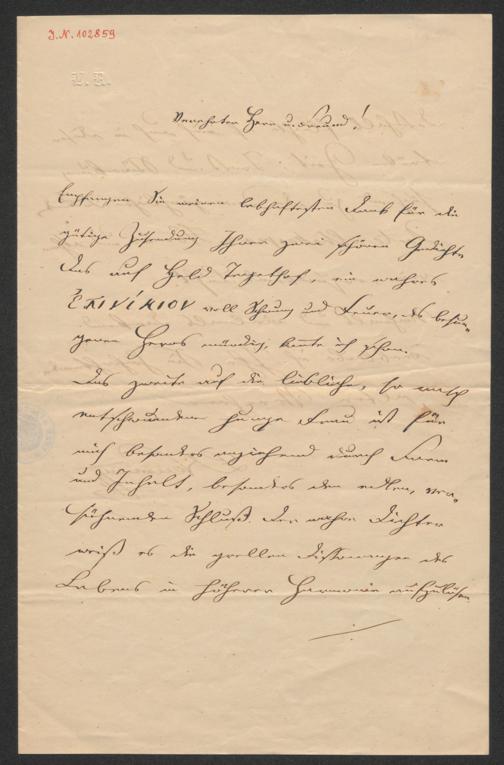 J.N. 102859
Verehrter Herr u. Freund!
Empfangen Sie meinen lebhaftesten Dank für die
gütige Zusendung Ihrer zwei schönen Gedichte.
Das auf Held Tegethof, ein wahres
Ἐπινίκιον voll Schwung und Feuer, des besun-
genen Heros würdig, kannte ich schon.
Das zweite auf die liebliche, so rasch
entschwundene junge Frau ist für
mich besonders anziehend durch Form
und Inhalt, besonders den edlen, ver-
söhnenden Schluß. Der wahre Dichter
weiß es die grellen Dissonanzen des
Lebens in höherer Harmonie aufzulösen.